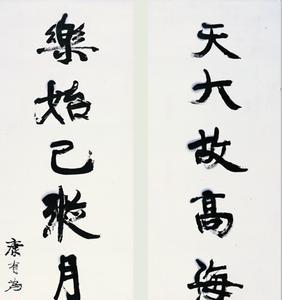 天大故高海
樂始已縱月
康有為